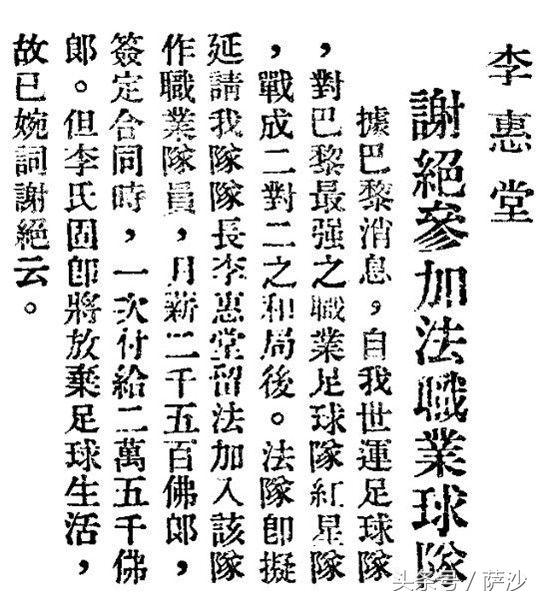 李惠堂
謝絕參加法職業球隊
據巴黎消息，自我世運足球隊
，對巴黎最强之職業足球隊紅星隊
，戰成二對二之和局後。法隊卽擬
延請我隊隊長李惠堂留法加入該隊
作職業隊員，月薪二千五百佛郎，
簽定合同時，一次付給二萬五千佛
郎。但李氏固卽將放棄足球生活，
故已婉詞謝絕云。
头条号 / 萨沙